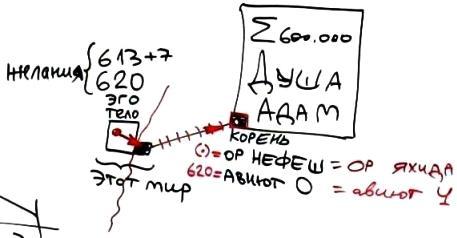 Σ 600.000
ДУША
АДАМ
желания
613+7
620
эго
тело
этот мир
корень
(•) = ор нефеш = ор яхида
620 = авиют 0 = авиют 4